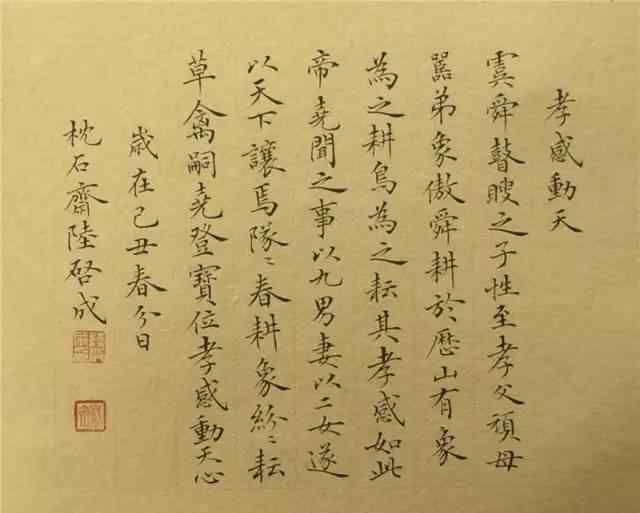 孝感動天
虞舜瞽瞍之子性至孝父頑母
嚚弟象傲舜耕於歷山有象
為之耕鳥為之耘其孝感如此
帝堯聞之事以九男妻以二女遂
以天下讓焉隊〻春耕象紛〻耘
草禽嗣堯登寶位孝感動天心
歲在己丑春分日
枕石齋陸啓成